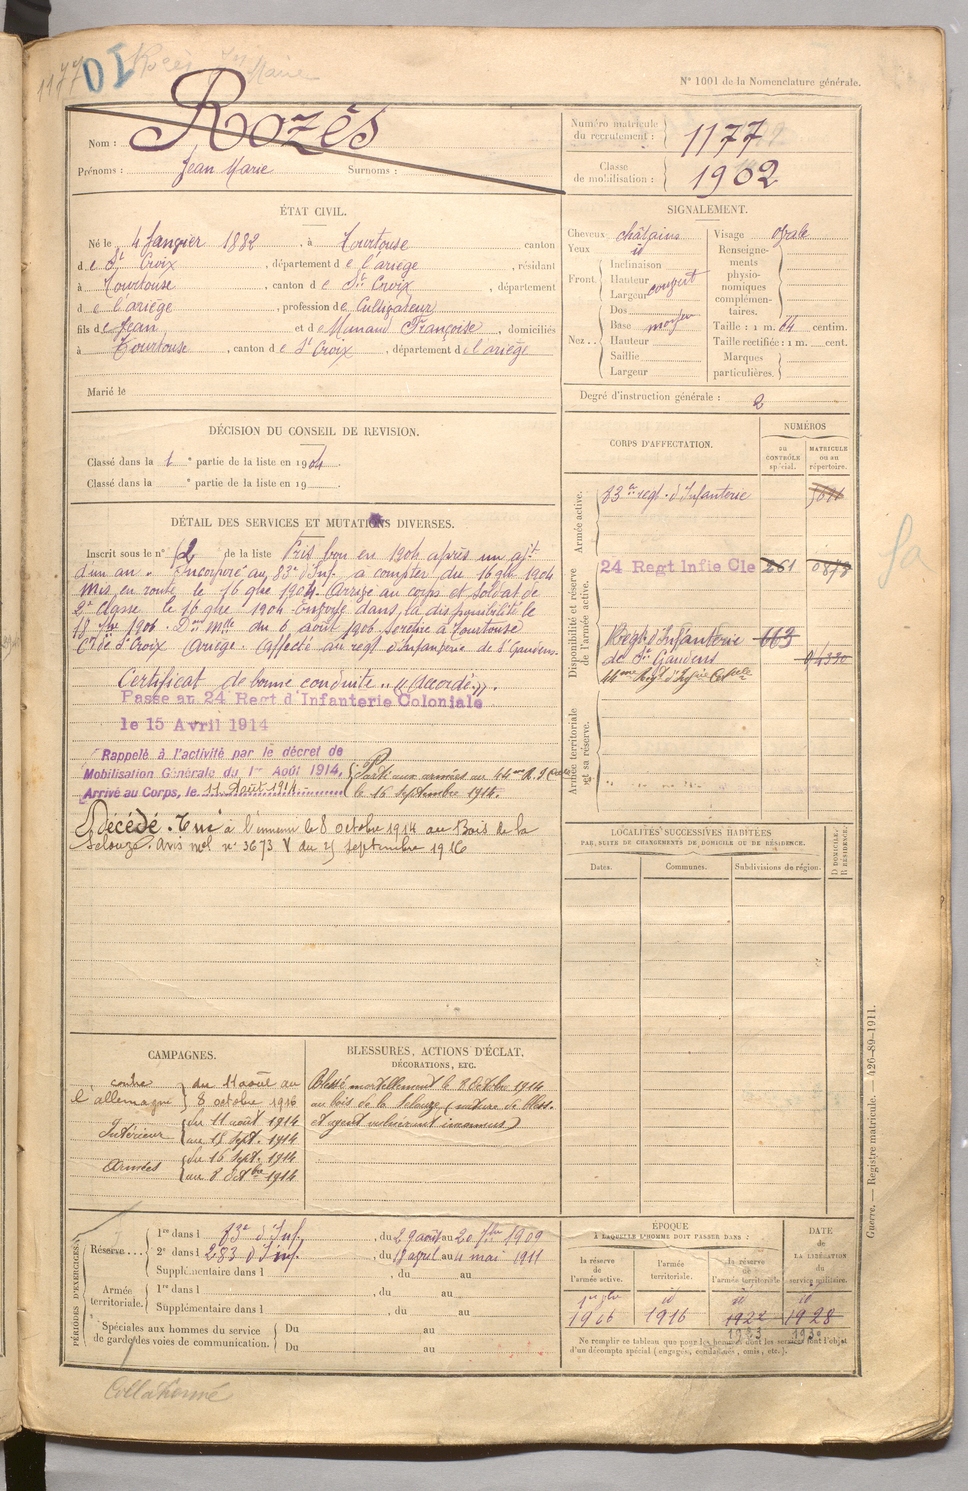 1177
01
Rozès Jn Marie
N° 1001 de la Nomenclature générale.
Nom : Rozès
Prénoms : Jean Marie Surnoms :
Numéro matricule du recrutement : 1177
Classe de mobilisation : 1902
ÉTAT CIVIL.
Né le 4 Janvier 1882, à Tourtouse canton
de St Croix, département de l'ariège, résidant
à Tourtouse, canton de Ste Croix, département
de l'ariège, profession de Cultivateur
fils de Jean et de Manaud Françoise, domiciliés
à Tourtouse, canton de St Croix, département de l'ariège
Marié le
SIGNALEMENT.
Cheveux châtains
Yeux id
Front Inclinaison
Hauteur couvert
Largeur
Nez Dos
Base moyen
Hauteur
Saillie
Largeur
Visage ovale
Renseignements physionomiques complémentaires.
Taille : 1 m. 64 centim.
Taille rectifiée : 1 m. cent.
Marques particulières.
Degré d'instruction générale : 2
DÉCISION DU CONSEIL DE REVISION.
Classé dans la 1e partie de la liste en 1904.
Classé dans la e partie de la liste en 19
CORPS D'AFFECTATION.
NUMÉROS
au CONTRÔLE spécial.
MATRICULE ou au répertoire.
Armée active.
83e regt d'Infanterie
Disponibilité et réserve de l'armée active.
24 Regt Infie Cle 261
Regt d'Infanterie 663
de St Gaudens
44me Regt d'Infie Colle
Armée territoriale et sa réserve.
DÉTAIL DES SERVICES ET MUTATIONS DIVERSES.
Inscrit sous le n° 62 de la liste Pris bon en 1904 après un ajt
d'un an. Incorporé au 83e d'Inf. à compter du 16 9bre 1904
Mis en route le 16 9bre 1904. Arrivé au corps et soldat de
2e classe le 16 9bre 1904. Envoyé dans la disponibilité le
18 7bre 1906. Don Mlle du 6 août 1906 se retire à Tourtouse
Cton de St Croix Ariège. Affecté au regt d'Infanterie de St Gaudens.
Certificat de bonne conduite "Accordé".
Passe au 24 Regt d'Infanterie Coloniale
le 15 Avril 1914
Rappelé à l'activité par le décret de
Mobilisation Générale du 1er Août 1914.
Arrivé au Corps, le 11 Août 1914
Parti aux armées au 44me R. I. Cole
le 16 septembre 1914.
Décédé. Tué à l'ennemi le 8 octobre 1914 au Bois de la
Selouze. Avis mel n° 3673 V du 25 septembre 1916
LOCALITÉS SUCCESSIVES HABITÉES
PAR SUITE DE CHANGEMENTS DE DOMICILE OU DE RÉSIDENCE.
Dates.
Communes.
Subdivisions de région.
D DOMICILE. R RÉSIDENCE.
CAMPAGNES.
contre l'allemagne du 11 août au 8 octobre 1916
Intérieur du 11 août 1914 au 15 sept. 1914
Armées du 16 sept. 1914 au 8 octbre 1914
BLESSURES, ACTIONS D'ÉCLAT.
DÉCORATIONS, ETC.
Blessé mortellement le 8 octobre 1914
au bois de la Selouze (nature de bless.
et agent vulnérant inconnus)
PÉRIODES D'EXERCICES.
Réserve
1re dans l 83e d'Inf., du 29 août au 20 7bre 1909
2e dans l 283 d'Inf., du 18 avril au 4 mai 1911
Supplémentaire dans l, du au
Armée territoriale.
1re dans l, du au
Supplémentaire dans l, du au
Spéciales aux hommes du service de garde des voies de communication.
Du au
Du au
ÉPOQUE
À LAQUELLE L'HOMME DOIT PASSER DANS :
la réserve de l'armée active.
l'armée territoriale.
la réserve de l'armée territoriale
DATE de LA LIBÉRATION du service militaire.
1906 1916 1922 1928
1923
Ne remplir ce tableau que pour les hommes dont les services font l'objet
d'un décompte spécial (engagés, condamnés, omis, etc.).
Guerre. — Registre matricule. — 426-89-1911.
Collationné